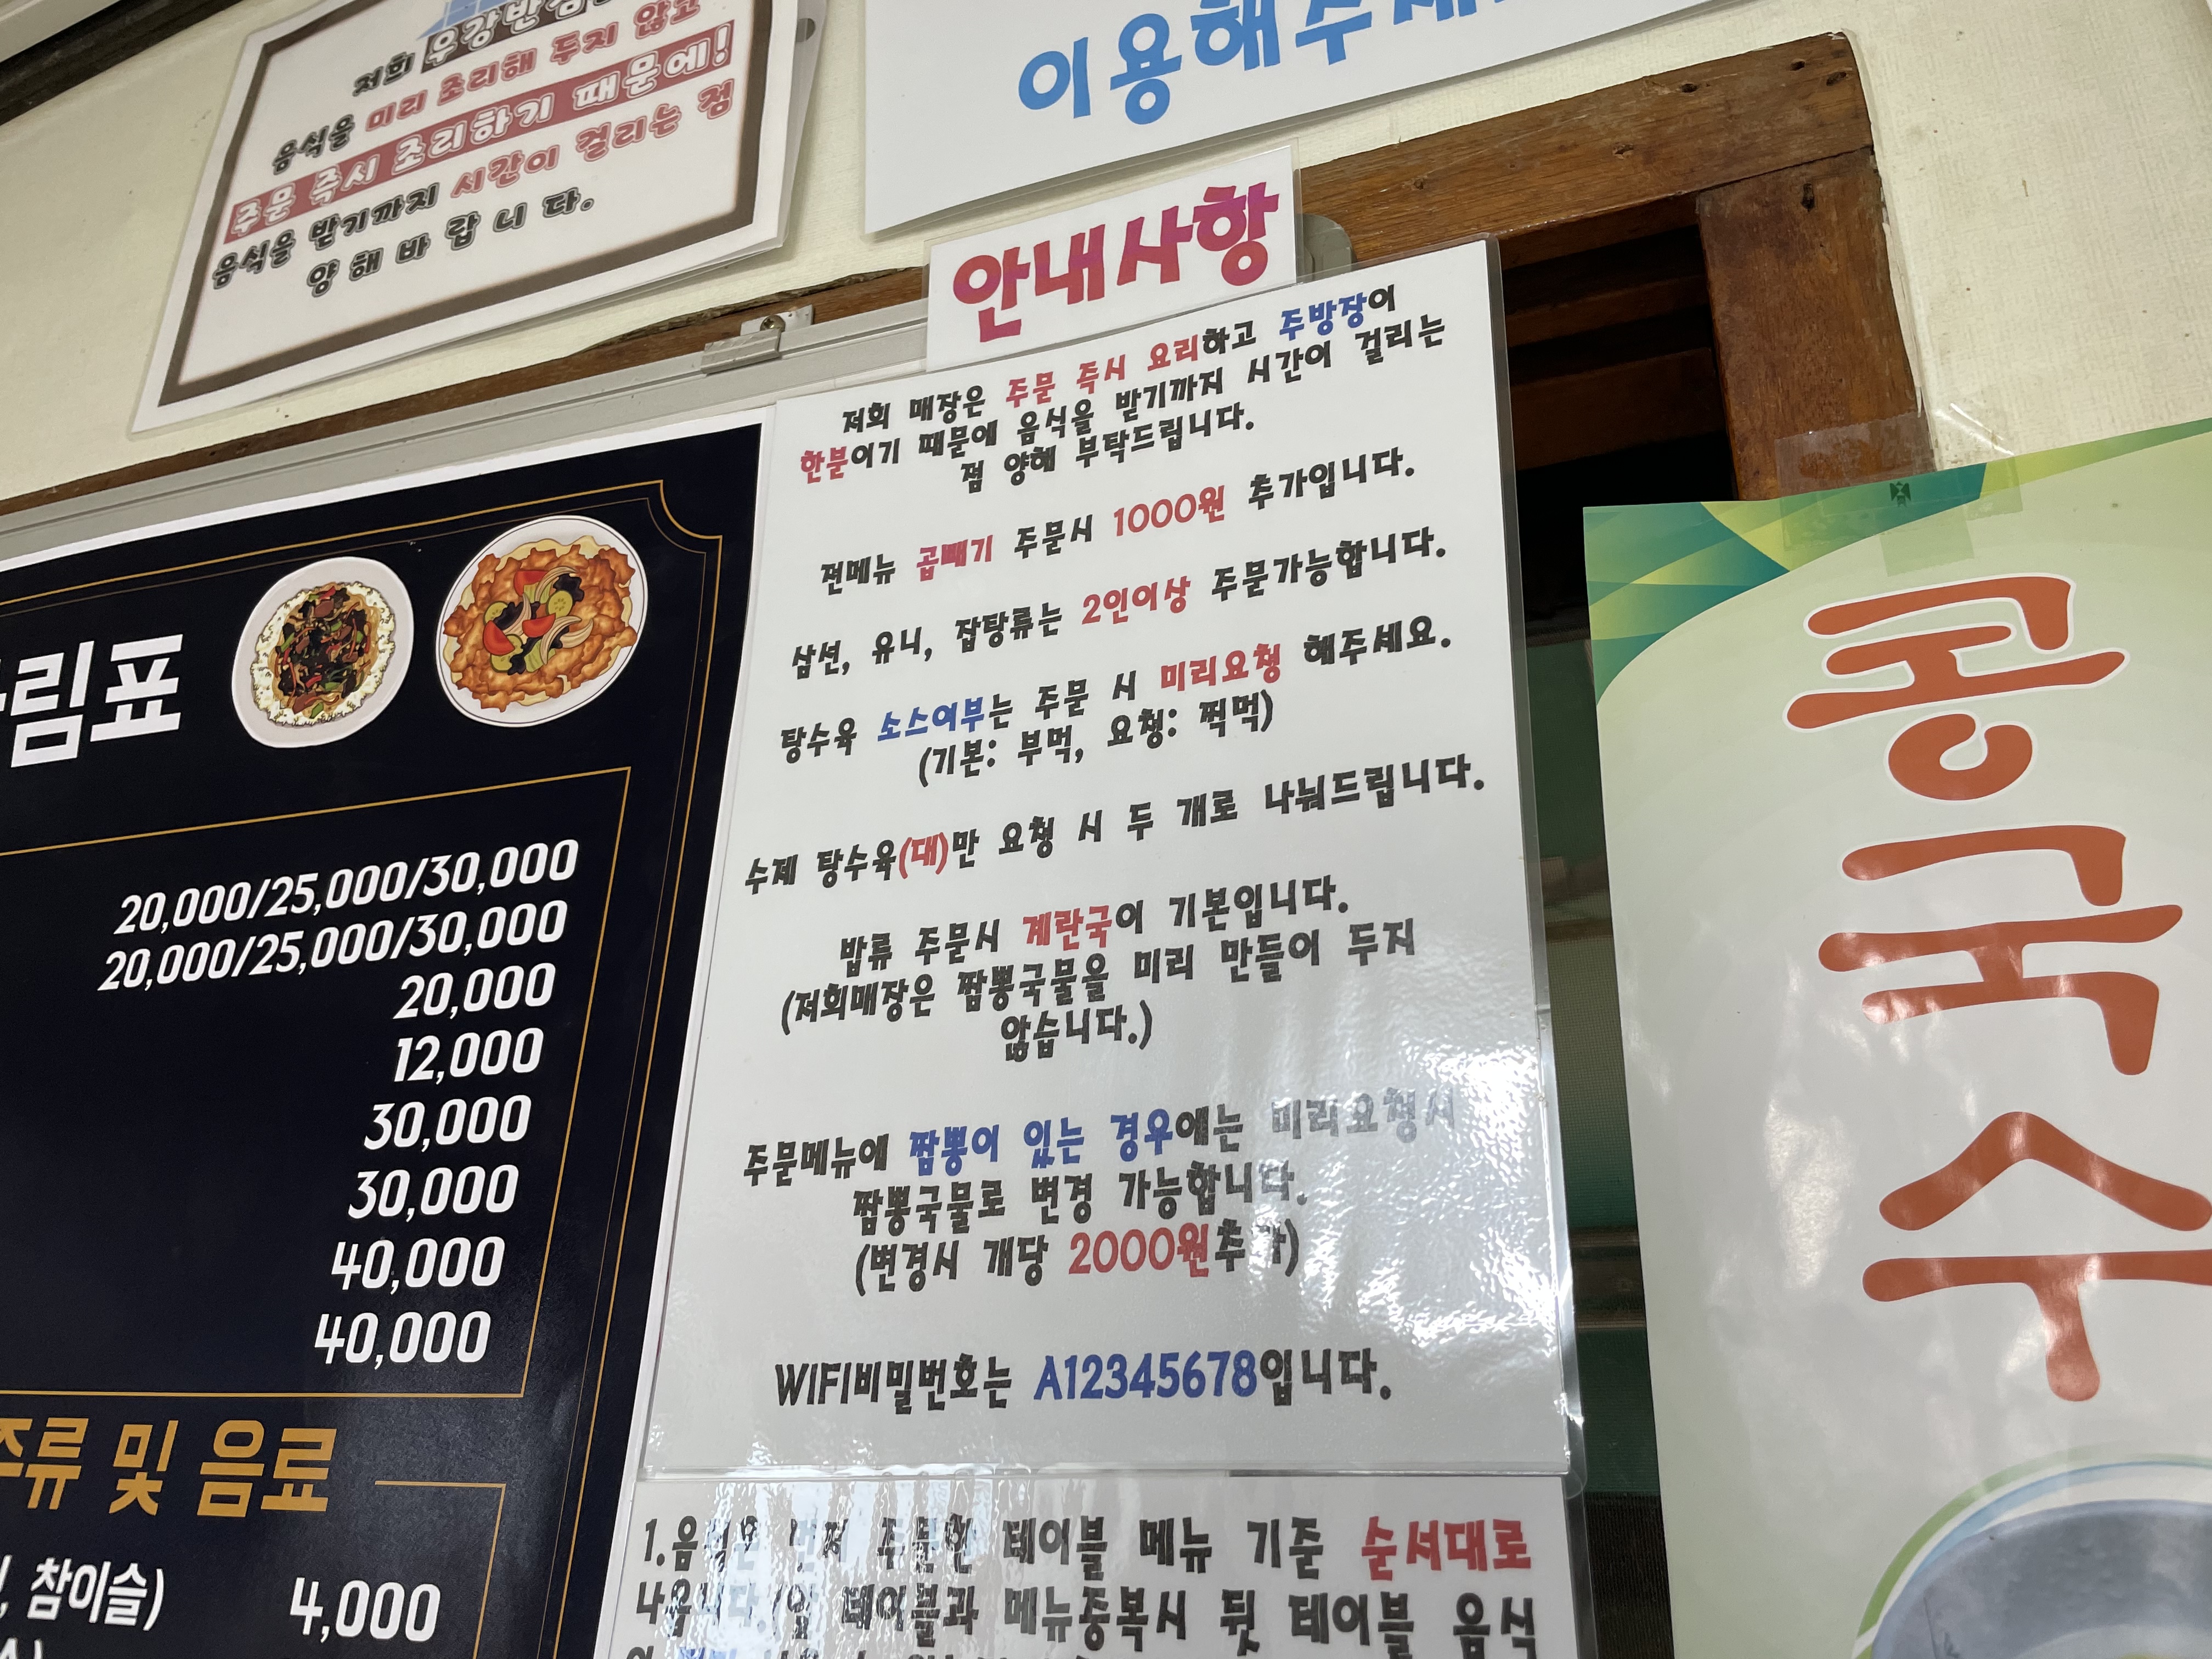 저희 우강반점은
음식을 미리 조리해 두지 않고
주문 즉시 조리하기 때문에!
음식을 받기까지 시간이 걸리는 점
양 해 바 랍 니 다.
이용해주세요
안내사항
저희 매장은 주문 즉시 요리하고 주방장이
한분이기 때문에 음식을 받기까지 시간이 걸리는
점 양해 부탁드립니다.
전메뉴 곱빼기 주문시 1000원 추가입니다.
삼선, 유니, 잡탕류는 2인이상 주문가능합니다.
탕수육 소스여부는 주문 시 미리요청 해주세요.
(기본: 부먹, 요청: 찍먹)
수제 탕수육(대)만 요청 시 두 개로 나눠드립니다.
밥류 주문시 계란국이 기본입니다.
(저희매장은 짬뽕국물을 미리 만들이 두지
않습니다.)
주문메뉴에 짬뽕이 있는 경우에는 미리요청시
짬뽕국물로 변경 가능합니다.
(변경시 개당 2000원추가)
WIFI비밀번호는 A12345678입니다.
1.음식은 먼저 주문한 테이블 메뉴 기준 순서대로
나옵니다.(앞 테이블과 메뉴중복시 뒷 테이블 음식
림표
20,000/25,000/30,000
20,000/25,000/30,000
20,000
12,000
30,000
30,000
40,000
40,000
주류 및 음료
, 참이슬) 4,000
콩국수